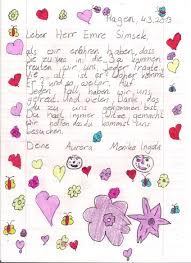 Hagen, 4.3.2013
Lieber Herr Emre Simsek,
als wir erfahren haben, dass
Sie zu uns in die kommen
freuten wir uns, jeder fragte
Wie alt ist er? Woher kommt
Er? und so weiter. Auf
jeden Fall haben wir uns
gefreut. Und vielen Dank, dass
du zu uns gekommen bist.
Du hast immer Witze gemacht
Wir hoffen du kommst uns
besuchen.
Deine Aurora Monika